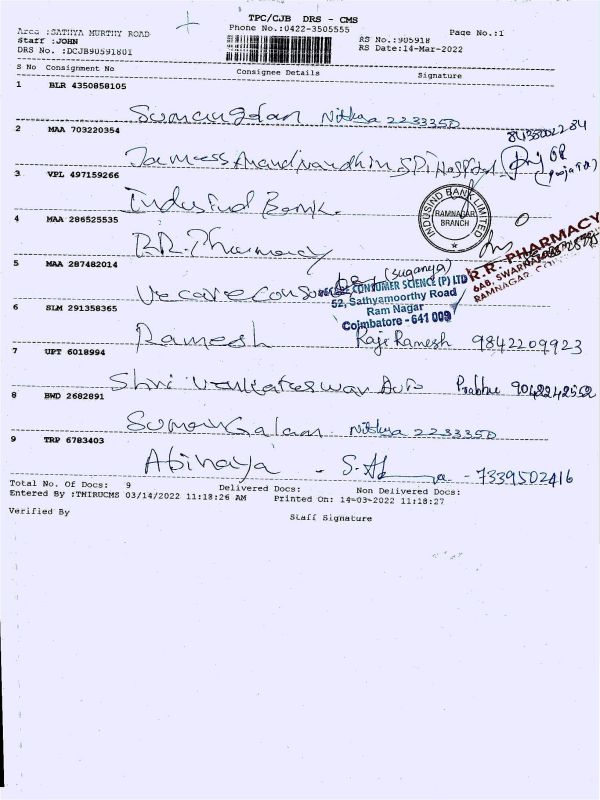 TPC/CJB DRS - CMS
Phone No.:0422-3505555
Page No.:1
Area :SATHYA MURTHY ROAD
Staff :JOHN
DRS No. :DCJB90591801
RS No.:905918
RS Date:14-Mar-2022
S No Consignment No Consignee Details Signature
1 BLR 4350858105
Sumangalam Nithya 223335D
2 MAA 703220354
Jamess Anandivardhin SDi Hospital
3 VPL 497159266
Indusind Bank.
INDUSIND BANK LIMITED
RAMNAGAR BRANCH
4 MAA 286525535
R.R. Pharmacy
R.R. PHARMACY
RAMNAGAR
5 MAA 287482014
Ve care Conso
(Suganya)
CONSUMER SCIENCE (P) LTD
52, Sathyamoorthy Road
Ram Nagar
Coimbatore - 641 009
6 SLM 291358365
Ramesh Raji Ramesh 9842209923
7 UPT 6018994
Shri Venkateswar Auto Prabhu 9042242552
8 BWD 2682891
Sumangalam Nithya 223335D
9 TRP 6783403
Abinaya - 7339502416
Total No. Of Docs: 9 Delivered Docs: Non Delivered Docs:
Entered By :THIRUCMS 03/14/2022 11:18:26 AM Printed On: 14-03-2022 11:18:27
Verified By
Staff Signature